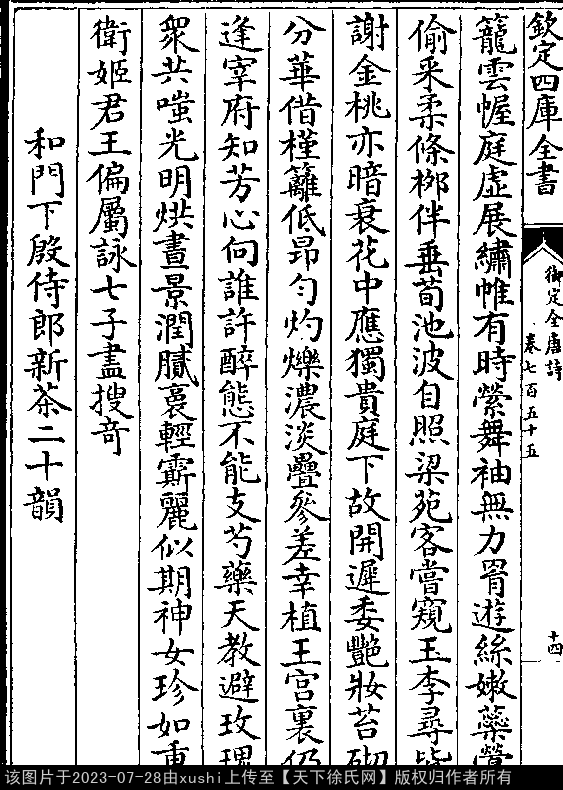 欽定四庫全書
御定全唐詩
卷七百五十五
十四
籠雲幄庭虛展繡帷有時縈舞袖無力罥遊絲嫩蘂鶯
偷采柔條柳伴垂荀池波自照梁苑客嘗窺玉李尋皆
謝金桃亦暗衰花中應獨貴庭下故開遲委艷妝苔砌
分華借槿籬低昂勻灼爍濃淡疊參差幸植王宮裏仍
逢宰府知芳心向誰許醉態不能支芍藥天教避玫瑰
衆共嗤光明烘晝景潤膩裛輕霢麗似期神女珍如重
衛姬君王偏屬詠七子盡搜奇
和門下殷侍郎新茶二十韻
该图片于2023-07-28由xushi上传至【天下徐氏网】版权归作者所有